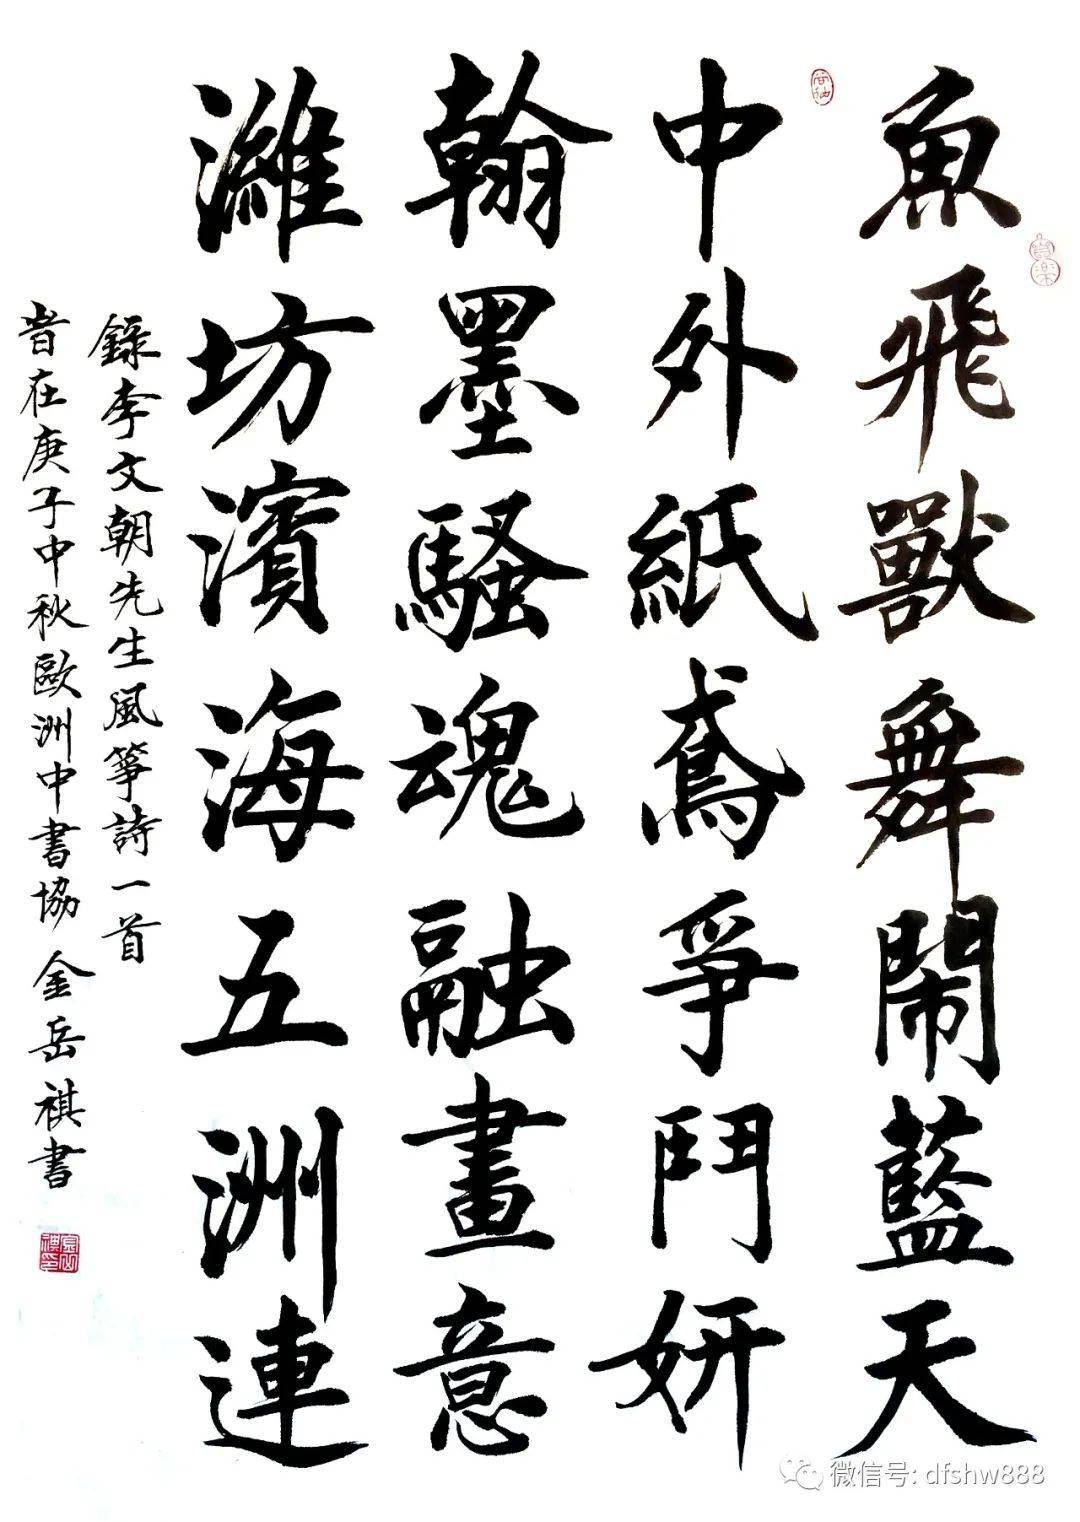 魚飛獸舞鬧藍天
中外紙鳶爭鬥妍
翰墨騷魂融畫意
濰坊濱海五洲連
錄李文朝先生風箏詩一首
昔在庚子中秋歐洲中書協金岳祺書
微信号: dfshw888